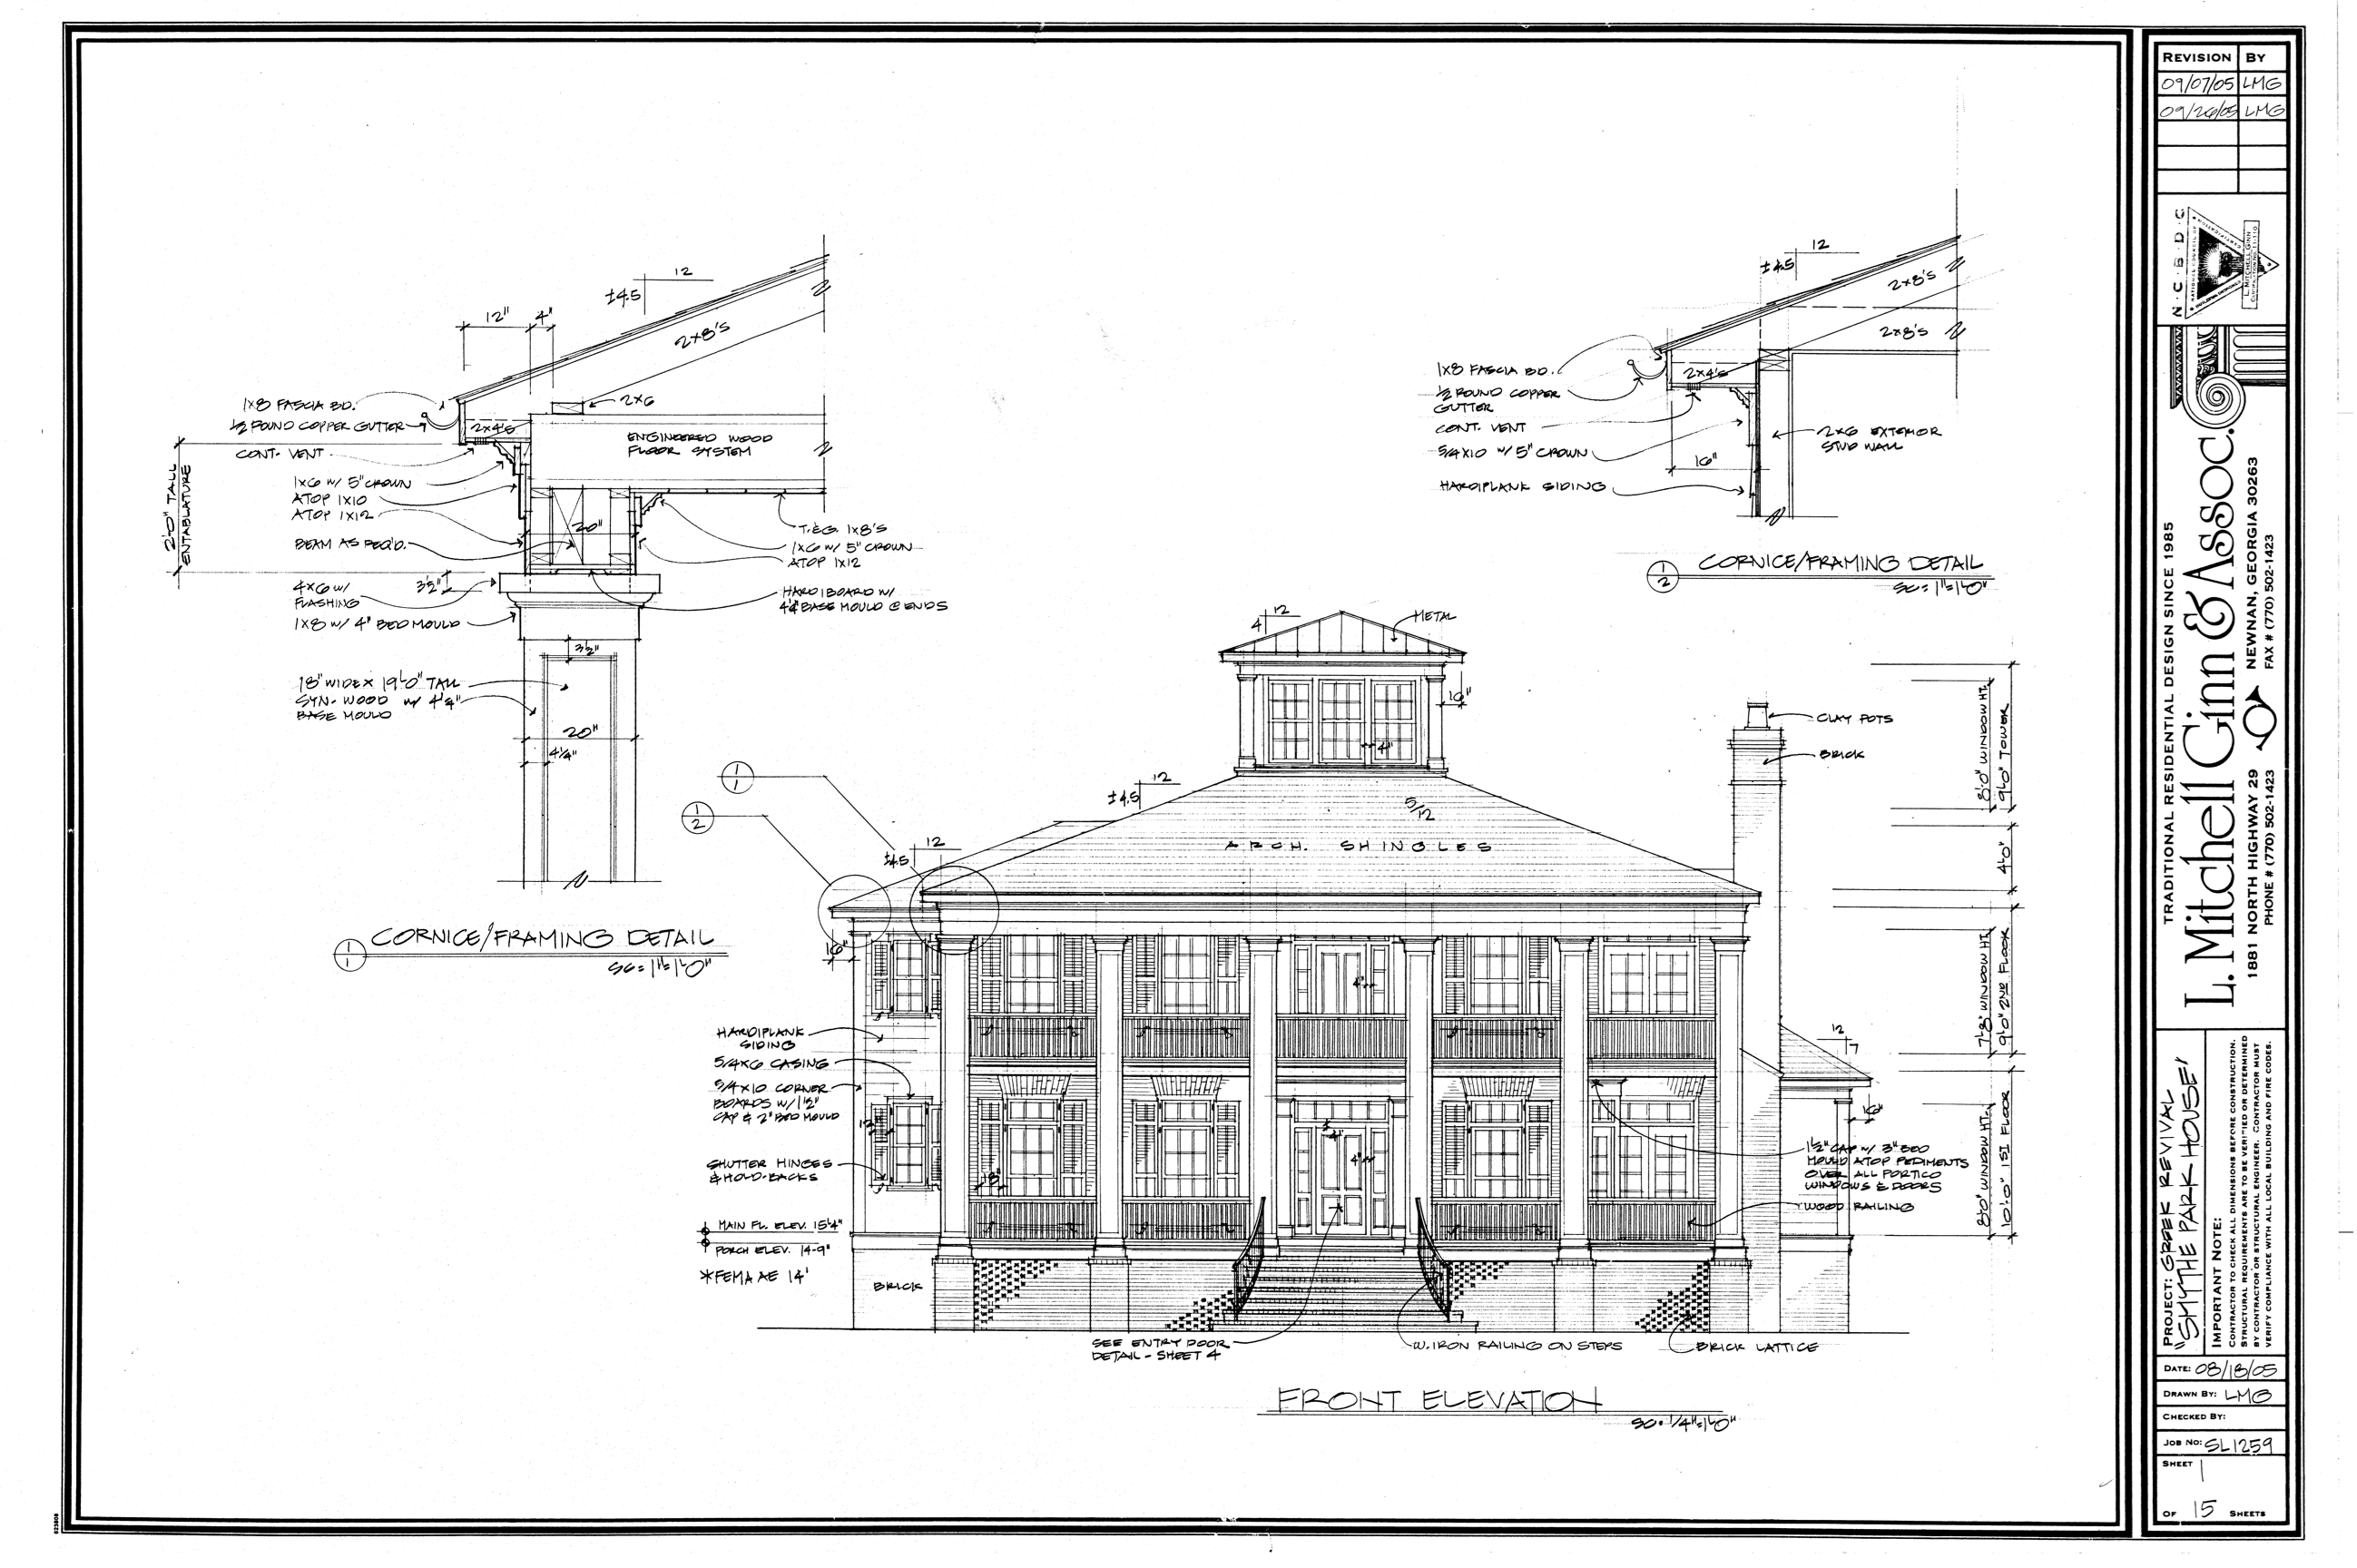 12
±4.5
12"
4"
2x8's
1x8 FASCIA BD.
½ ROUND COPPER GUTTER
2x4's
2x6
ENGINEERED WOOD
FLOOR SYSTEM
CONT. VENT
2'-0" TALL
ENTABLATURE
1x6 W/ 5" CROWN
ATOP 1x10
ATOP 1x12
BEAM AS REQ'D.
20"
T.&G. 1x8's
1x6 W/ 5" CROWN
ATOP 1x12
4x6 W/
FLASHING
3½"
HARDIBOARD W/
BASE MOULD @ ENDS
1x8 W/ 4" BED MOULD
3½"
18" WIDE X 19'-0" TALL
SYN. WOOD W/
BASE MOULD
20"
4¼"
1
1
CORNICE/FRAMING DETAIL
12
±4.5
2x8's
2x8's
1x8 FASCIA BD.
½ ROUND COPPER
GUTTER
2x4's
CONT. VENT
5/4x10 W/ 5" CROWN
2x6 EXTERIOR
STUD WALL
16"
HARDIPLANK SIDING
1
2
CORNICE/FRAMING DETAIL
12
4
METAL
16"
4"
CLAY POTS
BRICK
8'-0" WINDOW HT.
9'-0" TOWER
1
1
1
2
12
±4.5
5/12
ARCH. SHINGLES
12
±4.5
4'-0"
16"
4"
7'-8" WINDOW HT.
9'-0" 2ND FLOOR
HARDIPLANK
SIDING
5/4x6 CASING
5/4x10 CORNER
BOARDS W/ 1½"
CAP & 2" BED MOULD
SHUTTER HINGES
& HOLD-BACKS
12
7
16"
4"
4"
1½" CAP W/ 3" BED
MOULD ATOP PEDIMENTS
OVER ALL PORTICO
WINDOWS & DOORS
WOOD RAILING
8'-0" WINDOW HT.
10'-0" 1ST FLOOR
MAIN FL. ELEV. 15'-4"
PORCH ELEV. 14'-9"
*FEMA AE 14'
BRICK
SEE ENTRY DOOR
DETAIL - SHEET 4
W. IRON RAILING ON STEPS
BRICK LATTICE
FRONT ELEVATION
SC: 1/4"=1'-0"
REVISION BY
09/07/05 LMG
09/26/05 LMG
N·C·B·D·C
NATIONAL COUNCIL OF
BUILDING DESIGNER
CERTIFICATION
L. MITCHELL GINN
TRADITIONAL RESIDENTIAL DESIGN SINCE 1985
L. Mitchell Ginn & Assoc.
1881 NORTH HIGHWAY 29 NEWNAN, GEORGIA 30263
PHONE # (770) 502-1423 FAX # (770) 502-1423
PROJECT: GREEK REVIVAL
"SMYTHE PARK HOUSE"
IMPORTANT NOTE:
CONTRACTOR TO CHECK ALL DIMENSIONS BEFORE CONSTRUCTION.
STRUCTURAL REQUIREMENTS ARE TO BE VERIFIED OR DETERMINED
BY CONTRACTOR OR STRUCTURAL ENGINEER. CONTRACTOR MUST
VERIFY COMPLIANCE WITH ALL LOCAL BUILDING AND FIRE CODES.
DATE: 08/18/05
DRAWN BY: LMG
CHECKED BY:
JOB NO: SL1259
SHEET 1
OF 15 SHEETS